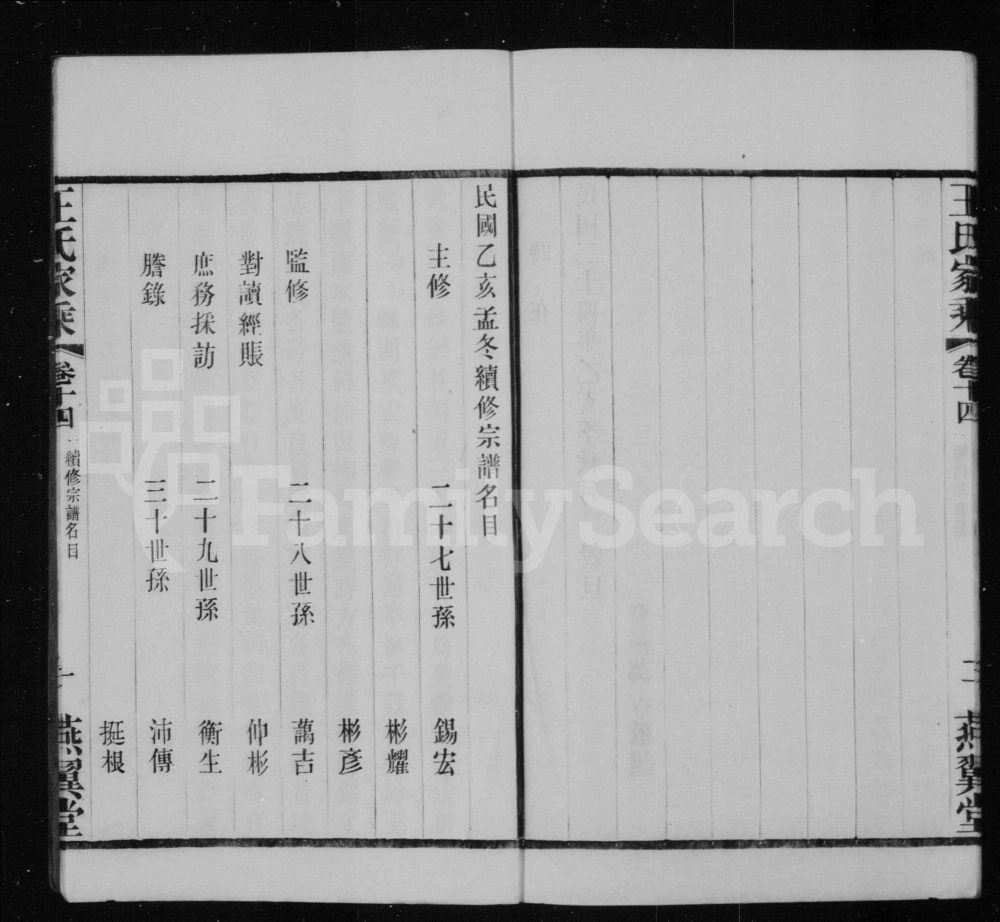 王氏家乘 卷十四 三 燕翼堂
民國乙亥孟冬續修宗譜名目
主修 二十七世孫 錫宏
彬耀
彬彥
監修 二十八世孫 藹吉
對讀經賬 仲彬
庶務採訪 二十九世孫 衡生
謄錄 三十世孫 沛傳
挺根
王氏家乘 卷十四 續修宗譜名目 一 燕翼堂
FamilySearch